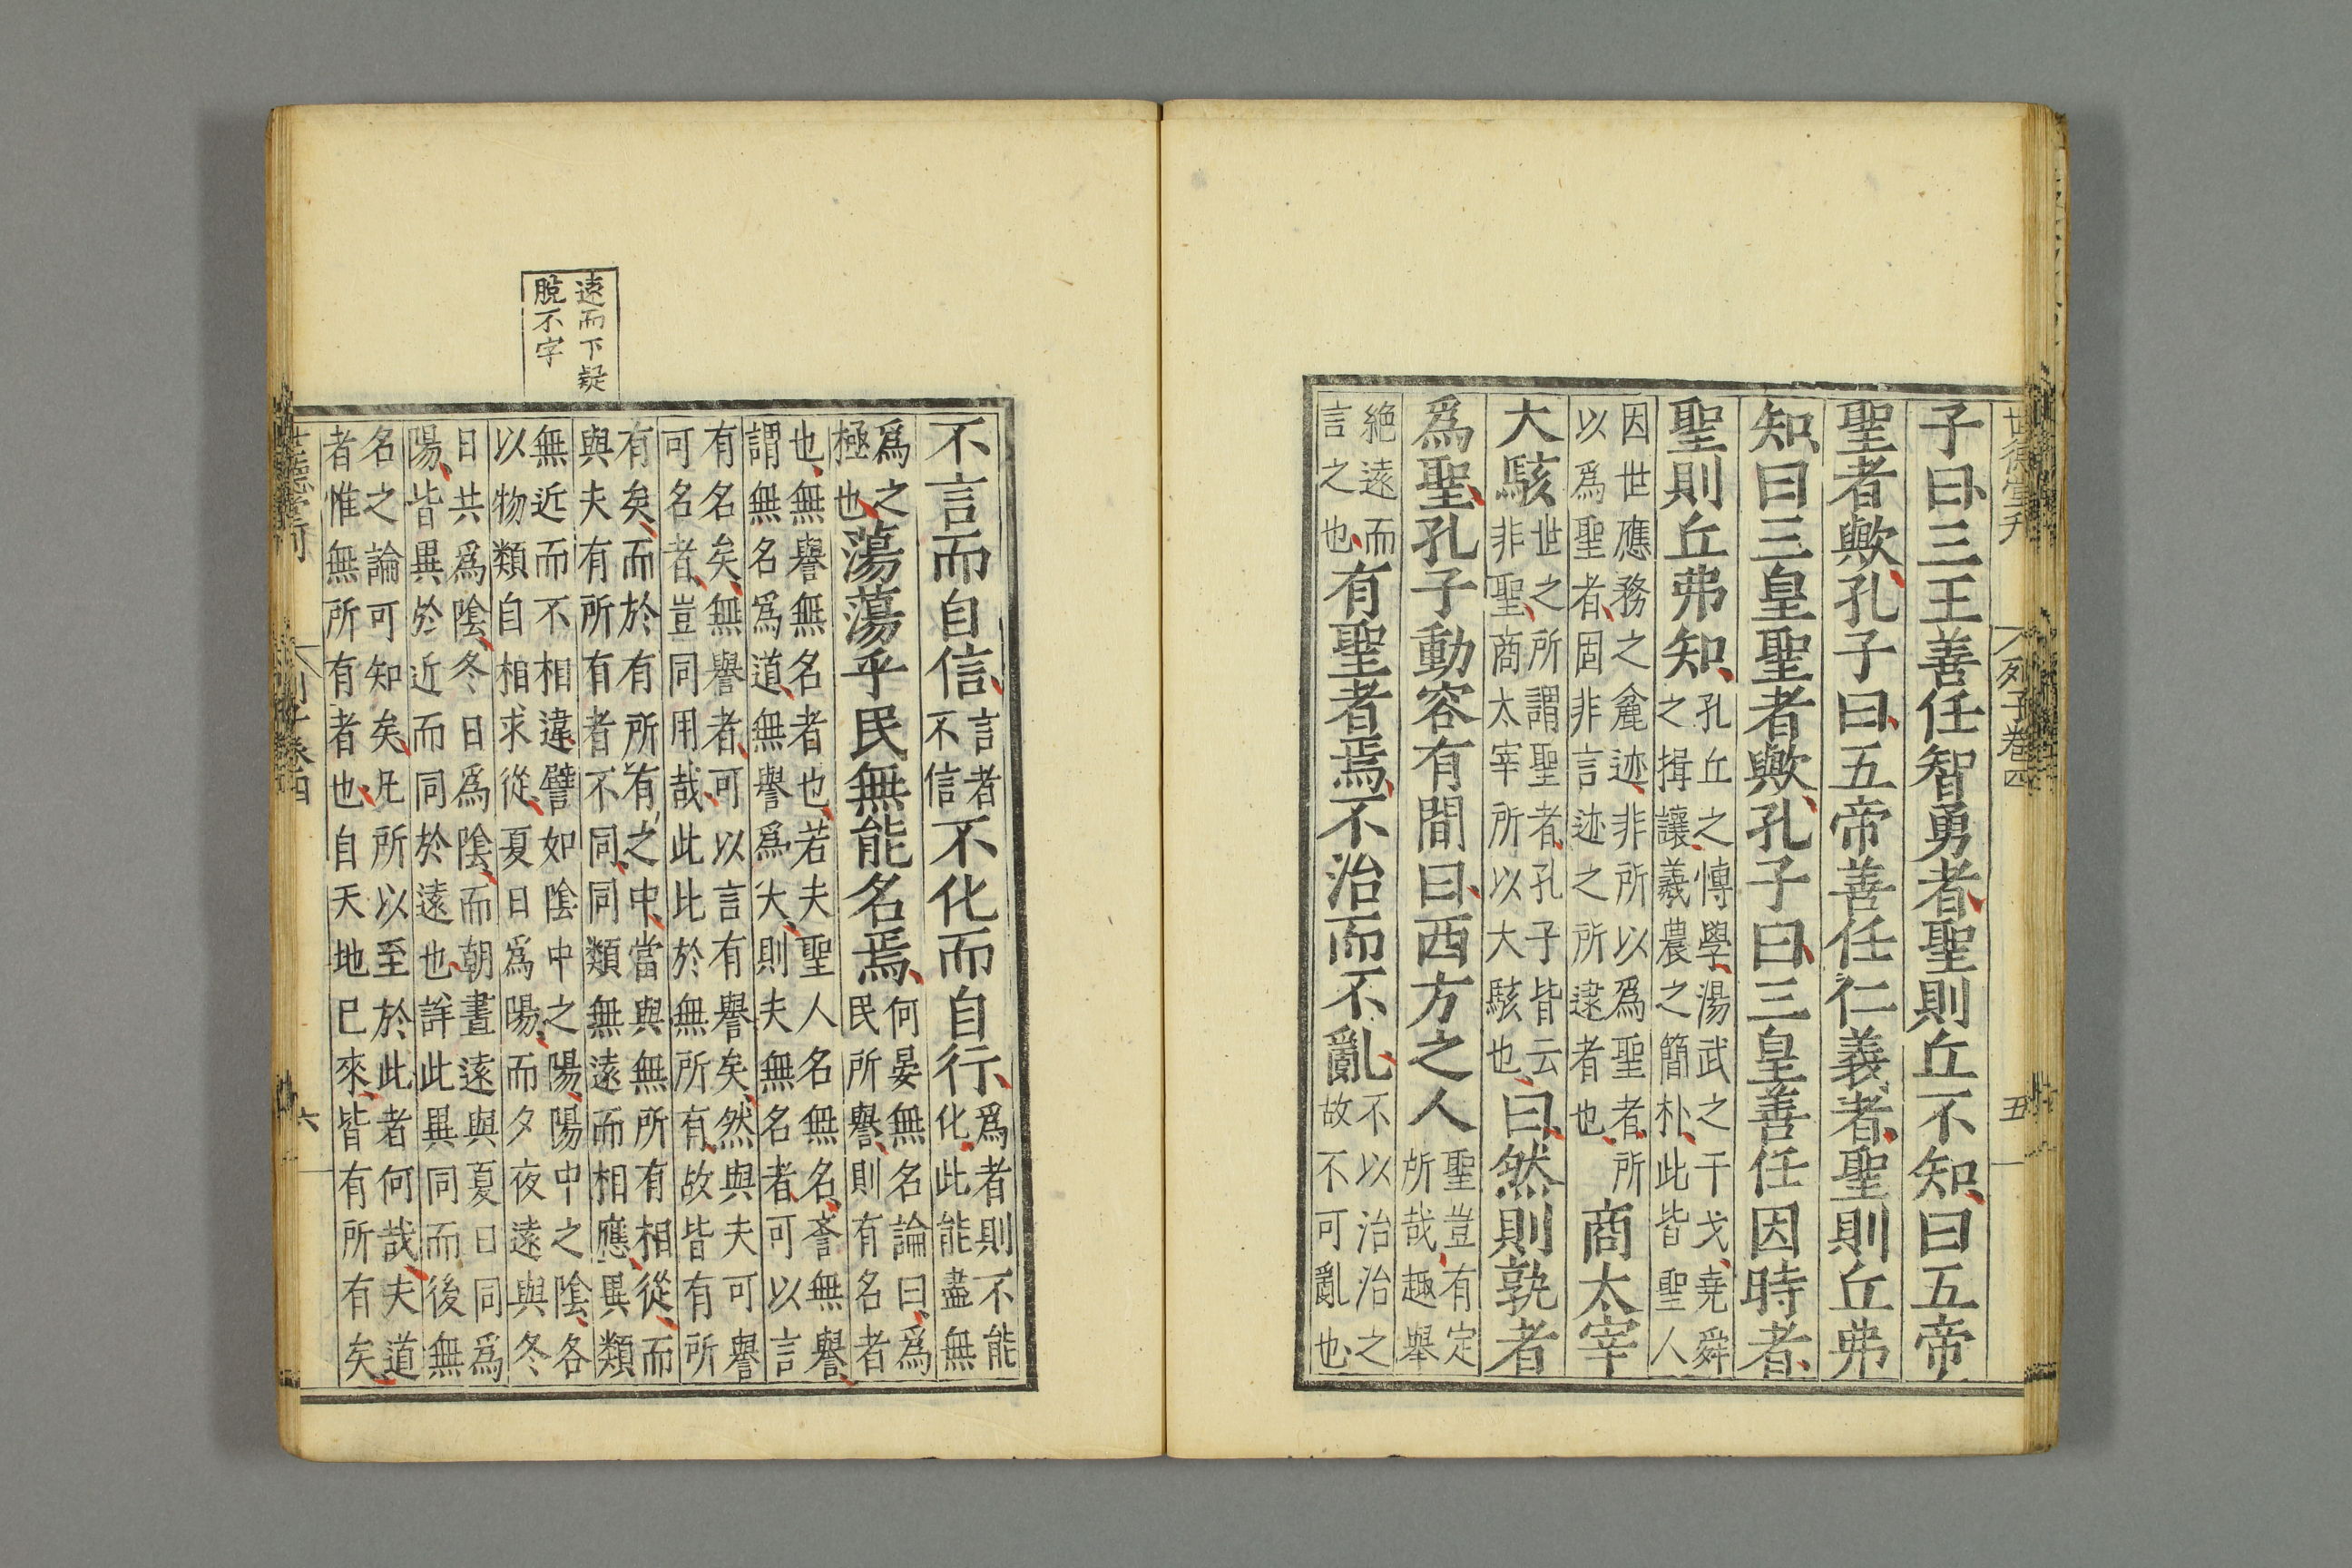 子曰三王善任智勇者聖則丘不知曰五帝
聖者歟孔子曰五帝善任仁義者聖則丘弗
知曰三皇聖者歟孔子曰三皇善任因時者
聖則丘弗知孔丘之博學湯武之干戈堯舜
之揖讓羲農之簡朴此皆聖人
因世應務之麄迹非所以爲聖者所
以爲聖者固非言迹之所逮者也商太宰
大駭世之所謂聖者孔子皆云
非聖商太宰所以大駭也曰然則孰者
爲聖孔子動容有間曰西方之人聖豈有定
所哉趣舉
絶遠而
言之也有聖者焉不治而不亂不以治治之
故不可亂也
世德堂刊
列子卷四
五
不言而自信言者
不信不化而自行爲者則不能
化此能盡無
爲之
極也蕩蕩乎民無能名焉何晏無名論曰爲
民所譽則有名者
也無譽無名者也若夫聖人名無名譽無譽
謂無名爲道無譽爲大則夫無名者可以言
有名矣無譽者可以言有譽矣然與夫可譽
可名者豈同用哉此比於無所有故皆有所
有矣而於有所有之中當與無所有相從而
與夫有所有者不同同類無遠而相應異類
無近而不相違譬如陰中之陽陽中之陰各
以物類自相求從夏日爲陽而夕夜遠與冬
日共爲陰冬日爲陰而朝晝遠與夏日同爲
陽皆異於近而同於遠也詳此異同而後無
名之論可知矣凡所以至於此者何哉夫道
者惟無所有者也自天地已來皆有所有矣
遠而下疑
脫不字
六